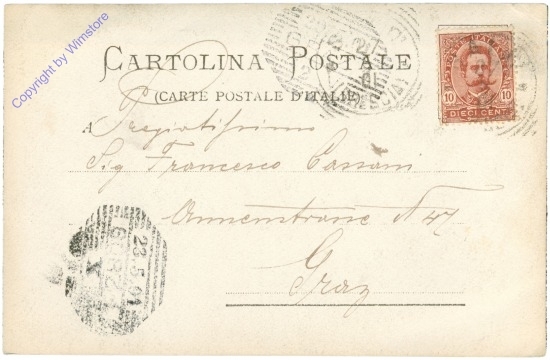 Copyright by Wimstore
CARTOLINA POSTALE
(CARTE POSTALE D'ITALIE)
POSTE ITALIANE
10 10
DIECI CENT
A Pregiatissimo
Sig Francesco Cassani
Annenstrasse N 47
Graz
23.5.01